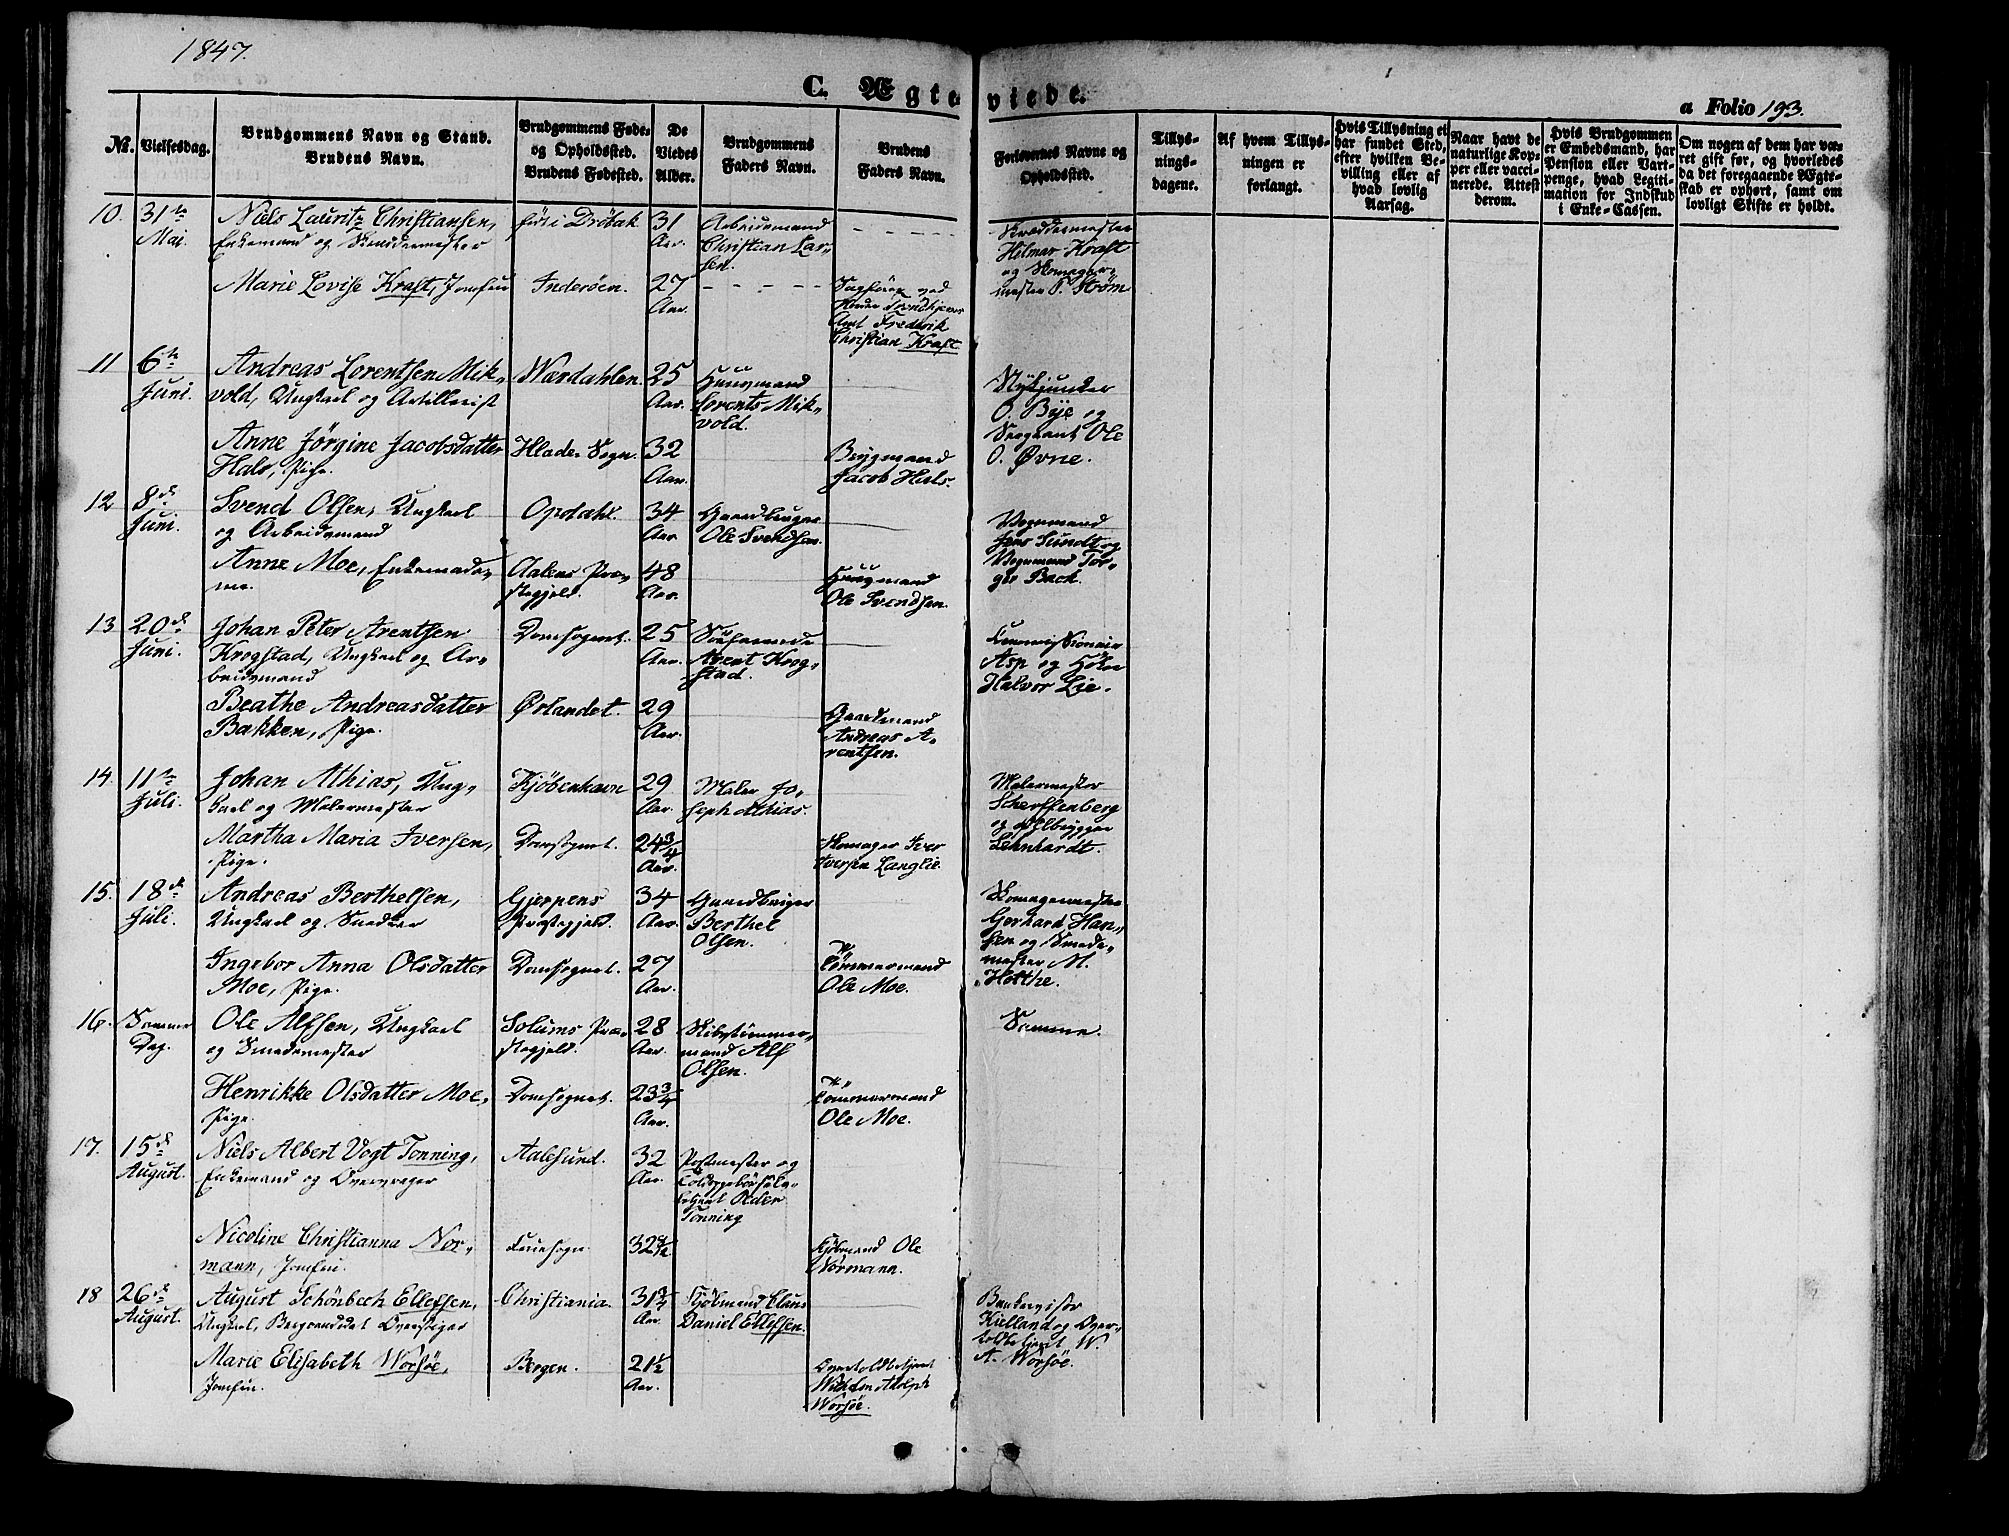 1847.
C. Ægteviede.
a Folio 193.
No. Vielsesdag. Brudgommens Navn og Stand. Brudens Navn. Brudgommens Føde- og Opholdssted. Brudens Fødested. De Viedes Alder. Brudgommens Faders Navn. Brudens Faders Navn. Forlovernes Navne og Opholdssted. Tillysningsdagene. Af hvem Tillysningen er forlangt. Hvis Tillysning ei har fundet Sted, efter hvilken Bevilling eller af hvad lovlig Aarsag. Naar havt de naturlige Kopper eller vaccinerede. Attest derom. Hvis Brudgommen er Embedsmand, har Pension eller Vartpenge, hvad Legitimation for Indskud i Enke-Cassen. Om nogen af dem har været gift før, og hvorledes da det foregaaende Ægteskab er ophørt, samt om lovligt Skifte er holdt.
10. 31te Mai.
Niels Lauritz Christiansen, Enkemand og
født i Drøbak 31 Aar.
Arbeidsmand Christian Larsen.
Marie Lovise Kraft, Jomfru
Inderøen. 27 Aar.
Amt Frederik Christian Kraft.
Skræddermester Hilmar Kraft og Skomagermester P. Strøm
11 6te Juni.
Andreas Lorentsen Mikvold, Ungkarl og Artillerist
Værdahlen. 25 Aar.
Huusmand Lorents Mikvold.
Anne Jørgine Jacobsdatter Hals, Pige.
Hlade Sogn. 32 Aar.
Jacob Hals.
O. Bye og Sergeant Ole O. Øvne.
12 8de Juni.
Svend Olsen, Ungkarl og Arbeidsmand
Opdahl. 34 Aar
Gaardbruger Ole Svendsen.
Anne Moe,
Aalens Præstegjeld. 48 Aar.
Huusmand Ole Svendsen.
Vognmand Jens Sundt og Vognmand Bach.
13 20de Juni.
Johan Peter Arentsen Krogstad, Ungkarl og Arbeidsmand
Domsognet. 25 Aar.
Arent Krogstad.
Beathe Andreasdatter Bakken, Pige.
Ørlandet. 29 Aar.
Gaardmand Andreas Arentsen.
Asp og Halvor Lie.
14. 11te Juli.
Johan Athias, Ungkarl og Malermester
Kjøbenhavn 29 Aar.
Maler Joseph Athias.
Martha Maria Iversen, Pige.
Domsognet. 24¾ Aar.
Skomager Iver Iversen Langlie.
Malermester Scherffenberg og Ølbrygger Lehnhardt.
15. 18de Juli.
Andreas Berthelsen, Ungkarl og Snedker
Gjerpens Præstegjeld. 34 Aar.
Gaardbruger Berthel Olsen.
Ingebor Anna Olsdatter Moe, Pige.
Domsognet. 27 Aar.
Tømmermand Ole Moe.
Skomagermester Gerhard Hansen og Smedemester M. Hotthe.
16. Samme Dag.
Ole Alfsen, Ungkarl og Smedemester
Solums Præstegjeld. 28 Aar.
Skibstømmermand Alf Olsen.
Samme.
Henrikke Olsdatter Moe, Pige
Domsognet. 23¾ Aar.
Tømmermand Ole Moe.
17. 15de August.
Niels Albert Vogt Tonning, Enkemand og Overvrager
Aalesund. 32 Aar.
Postmester og Peder Tonning
Nicoline Christianna Normann, Jomfru.
Fruesogn. 32
Kjøbmand Ole Normann.
18 26de August.
August Schönbech Ellefsen, Ungkarl,
Christiania. 31 Aar.
Kjøbmand Claus Daniel Ellefsen.
Marie Elisabeth Worsöe, Jomfru.
Bergen. 21½ Aar.
Wilhelm Adolph Worsöe.
Bankrevisor Kielland og W. A. Worsöe.